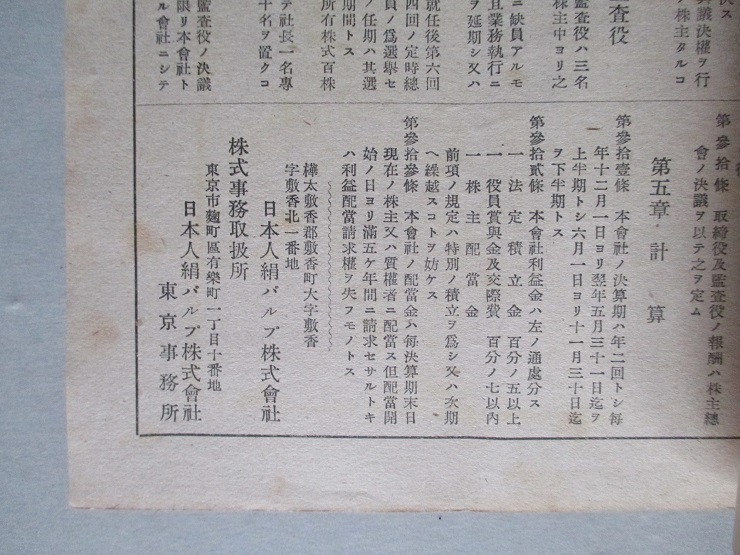 決ス
議決權ヲ行
株主タルコ
査役
監査役ハ三名
株主中ヨリ之
ニ缺員アルモ
且業務執行ニ
ヲ延期シ又ハ
就任後第六回
四回ノ定時總
員ノ爲選擧セ
ノ任期ハ其選
期間トス
所有株式百株
テ社長一名專
干名ヲ置クコ
監査役ノ決議
限リ本會社ト
ル會社ニシテ
第參拾條 取締役及監査役ノ報酬ハ株主總
會ノ決議ヲ以テ之ヲ定ム
第五章 計算
第參拾壹條 本會社ノ決算期ハ年二回トシ每
年十二月一日ヨリ翌年五月三十一日迄ヲ
上半期トシ六月一日ヨリ十一月三十日迄
ヲ下半期トス
第參拾貳條 本會社利益金ハ左ノ通處分ス
一 法定積立金 百分ノ五以上
一 役員賞與金及交際費 百分ノ七以內
一 株主配當金
前項ノ規定ハ特別ノ積立ヲ爲シ又ハ次期
ヘ繰越スコトヲ妨ケス
第參拾參條 本會社ノ配當金ハ每決算期末日
現在ノ株主又ハ質權者ニ配當ス但配當開
始ノ日ヨリ滿五ケ年間ニ請求セサルトキ
ハ利益配當請求權ヲ失フモノトス
樺太敷香郡敷香町大字敷香
字敷香北一番地
日本人絹パルプ株式會社
株式事務取扱所
東京市麴町區有樂町一丁目十番地
日本人絹パルプ株式會社
東京事務所